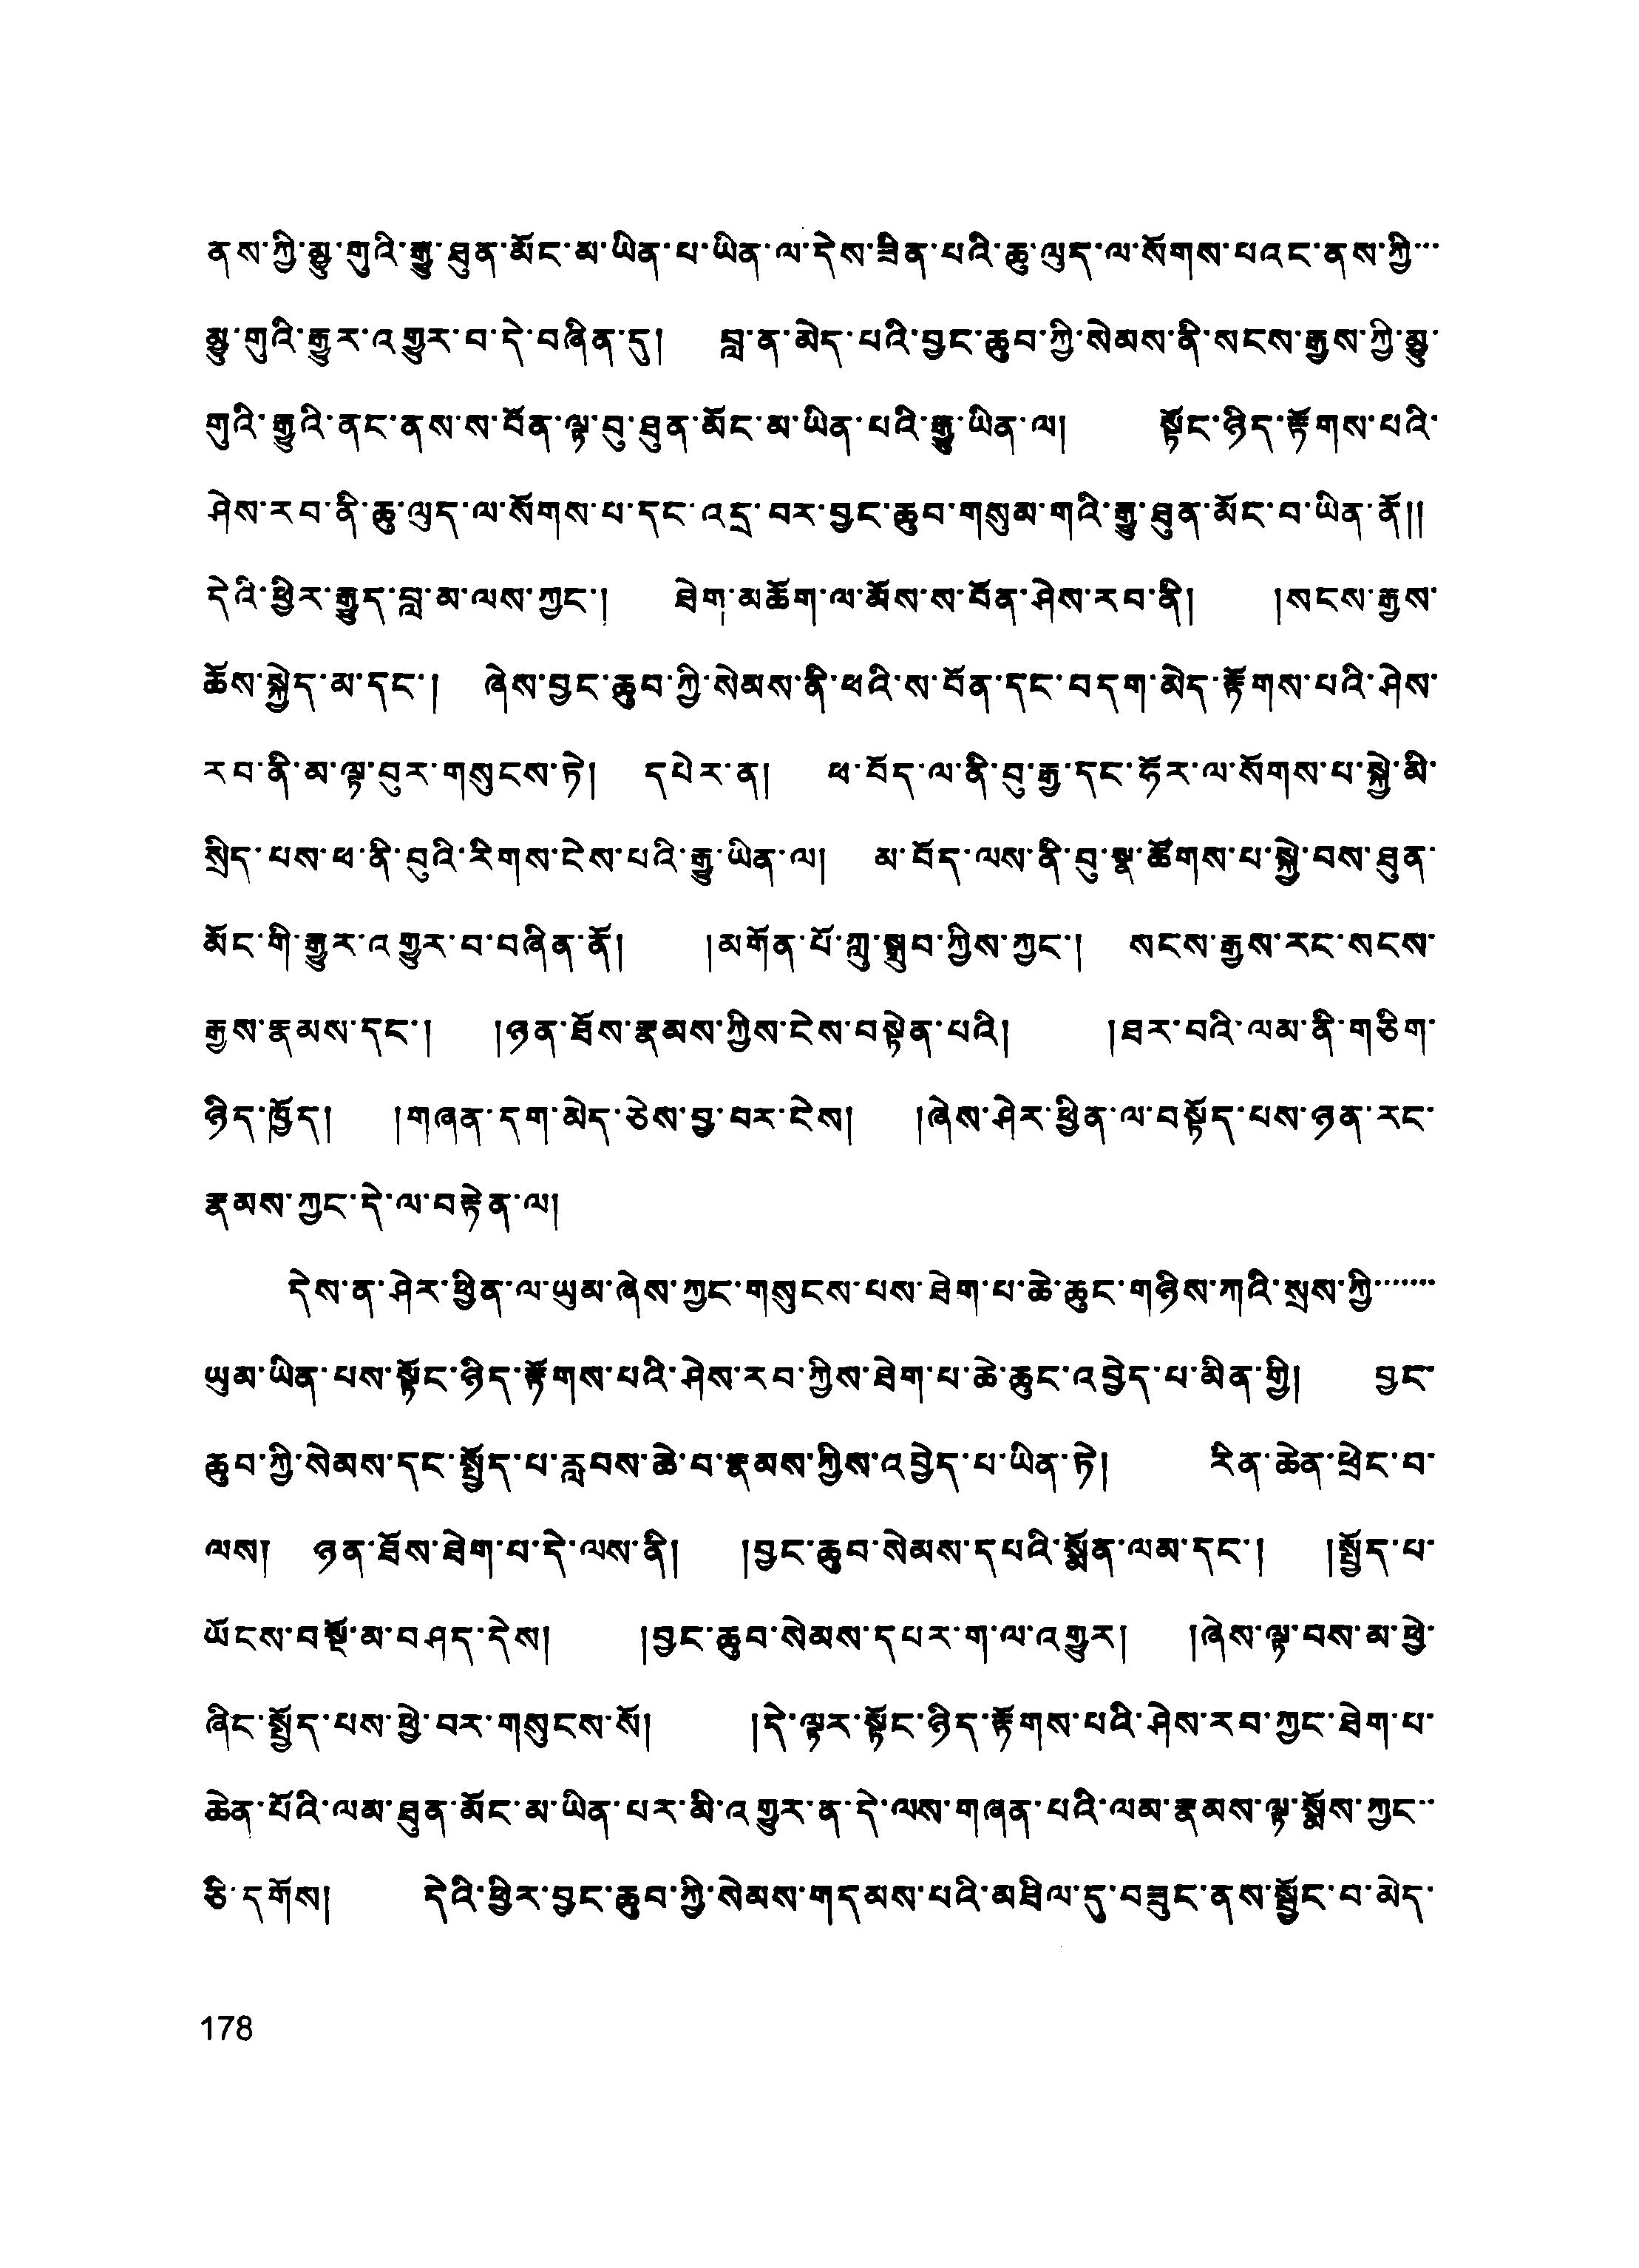 ནས་ཀྱི་མྱུ་གུའི་རྒྱུ་ཐུན་མོང་མ་ཡིན་པ་ཡིན་ལ་དེས་ཟིན་པའི་ཆུ་ལུད་ལ་སོགས་པའང་ནས་ཀྱི་་་
མྱུ་གུའི་རྒྱུར་འགྱུར་བ་དེ་བཞིན་དུ། བླ་ན་མེད་པའི་བྱང་ཆུབ་ཀྱི་སེམས་ནི་སངས་རྒྱས་ཀྱི་མྱུ་
གུའི་རྒྱུའི་ནང་ནས་ས་བོན་ལྟ་བུ་ཐུན་མོང་མ་ཡིན་པའི་རྒྱུ་ཡིན་ལ། སྟོང་ཉིད་རྟོགས་པའི་
ཤེས་རབ་ནི་ཆུ་ལུད་ལ་སོགས་པ་དང་འདྲ་བར་བྱང་ཆུབ་གསུམ་གའི་རྒྱུ་ཐུན་མོང་བ་ཡིན་ནོ།།
དེའི་ཕྱིར་རྒྱུད་བླ་མ་ལས་ཀྱང་། ཐེག་མཆོག་ལ་མོས་ས་བོན་ཤེས་རབ་ནི། །སངས་རྒྱས་
ཆོས་སྐྱེད་མ་དང་། ཞེས་བྱང་ཆུབ་ཀྱི་སེམས་ནི་ཕའི་ས་བོན་དང་བདག་མེད་རྟོགས་པའི་ཤེས་
རབ་ནི་མ་ལྟ་བུར་གསུངས་ཏེ། དཔེར་ན། ཕ་བོད་ལ་ནི་བུ་རྒྱ་དང་ཧོར་ལ་སོགས་པ་སྐྱེ་མི་
སྲིད་པས་ཕ་ནི་བུའི་རིགས་ངེས་པའི་རྒྱུ་ཡིན་ལ། མ་བོད་ལས་ནི་བུ་སྣ་ཚོགས་པ་སྐྱེ་བས་ཐུན་
མོང་གི་རྒྱུར་འགྱུར་བ་བཞིན་ནོ། །མགོན་པོ་ཀླུ་སྒྲུབ་ཀྱིས་ཀྱང་། སངས་རྒྱས་རང་སངས་
རྒྱས་རྣམས་དང་། །ཉན་ཐོས་རྣམས་ཀྱིས་ངེས་བསྟེན་པའི། །ཐར་བའི་ལམ་ནི་གཅིག་
ཉིད་ཁྱོད། །གཞན་དག་མེད་ཅེས་བྱ་བར་ངེས། །ཞེས་ཤེར་ཕྱིན་ལ་བསྟོད་པས་ཉན་རང་
རྣམས་ཀྱང་དེ་ལ་བརྟེན་ལ།
དེས་ན་ཤེར་ཕྱིན་ལ་ཡུམ་ཞེས་ཀྱང་གསུངས་པས་ཐེག་པ་ཆེ་ཆུང་གཉིས་ཀའི་སྲས་ཀྱི་་་་་་་
ཡུམ་ཡིན་པས་སྟོང་ཉིད་རྟོགས་པའི་ཤེས་རབ་ཀྱིས་ཐེག་པ་ཆེ་ཆུང་འབྱེད་པ་མིན་གྱི། བྱང་
ཆུབ་ཀྱི་སེམས་དང་སྤྱོད་པ་རླབས་ཆེ་བ་རྣམས་ཀྱིས་འབྱེད་པ་ཡིན་ཏེ། རིན་ཆེན་ཕྲེང་བ་
ལས། ཉན་ཐོས་ཐེག་པ་དེ་ལས་ནི། །བྱང་ཆུབ་སེམས་དཔའི་སྨོན་ལམ་དང་། །སྤྱོད་པ་
ཡོངས་བསྔོ་མ་བཤད་དེས། །བྱང་ཆུབ་སེམས་དཔར་ག་ལ་འགྱུར། །ཞེས་ལྟ་བས་མ་ཕྱེ་
ཞིང་སྤྱོད་པས་ཕྱེ་བར་གསུངས་སོ། །དེ་ལྟར་སྟོང་ཉིད་རྟོགས་པའི་ཤེས་རབ་ཀྱང་ཐེག་པ་
ཆེན་པོའི་ལམ་ཐུན་མོང་མ་ཡིན་པར་མི་འགྱུར་ན་དེ་ལས་གཞན་པའི་ལམ་རྣམས་ལྟ་སྨོས་ཀྱང་་
ཅི་དགོས། དེའི་ཕྱིར་བྱང་ཆུབ་ཀྱི་སེམས་གདམས་པའི་མཐིལ་དུ་བཟུང་ནས་སྦྱོང་བ་མེད་
178